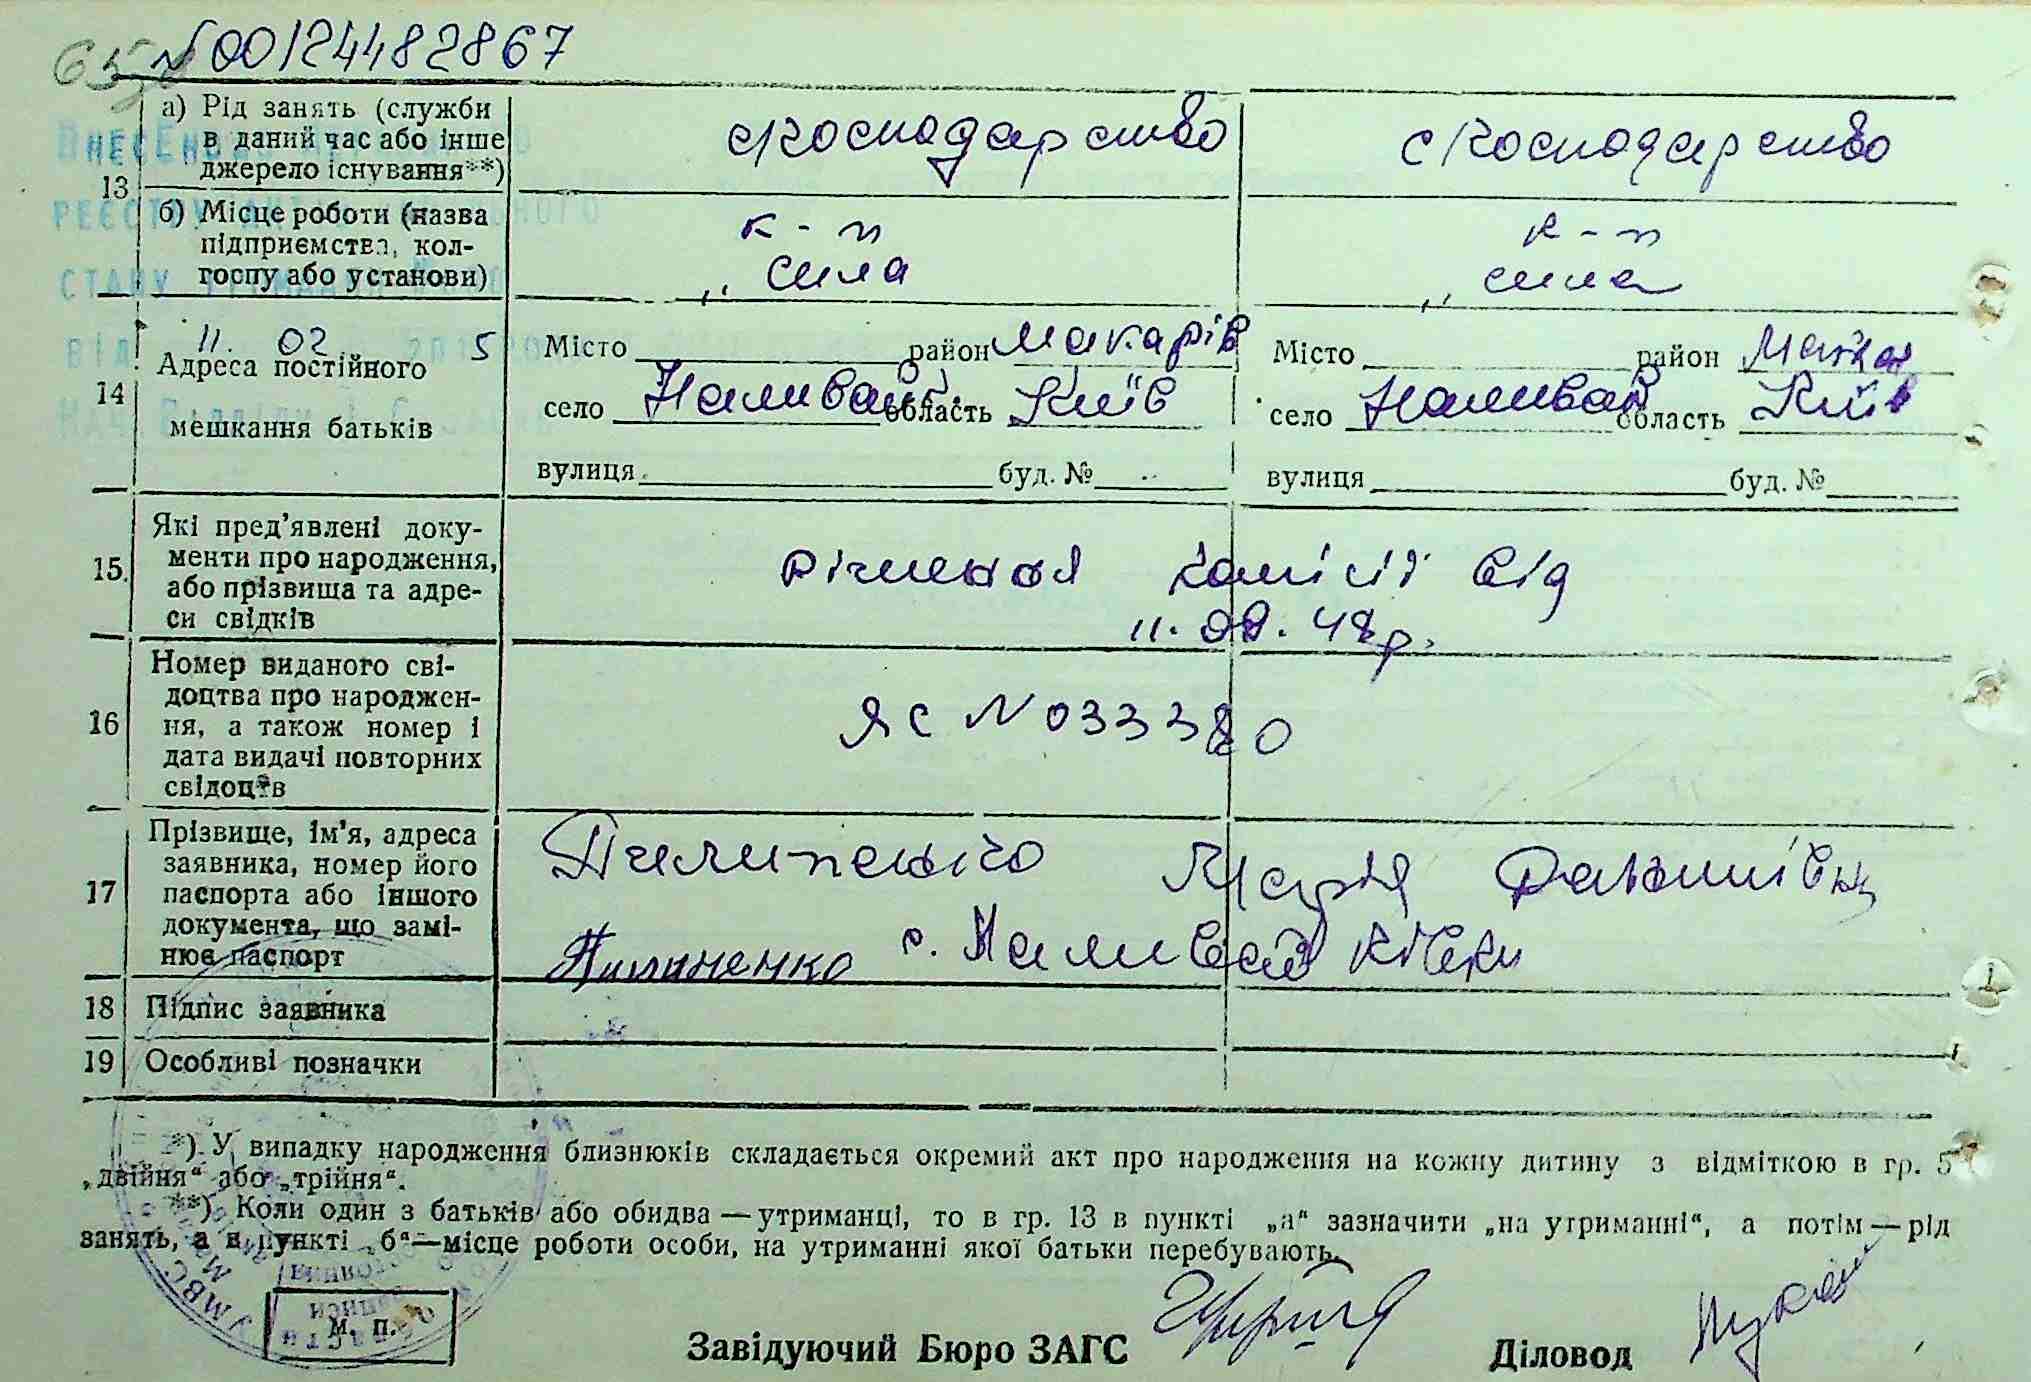 65 № 00124482867
13
а) Рід занять (служби
в даний час або інше
джерело існування**)
с/господарство
с/господарство
б) Місце роботи (назва
підприємства, кол-
госпу або установи)
к-п
„ сила
к-п
„ сила
11. 02 5
14
Адреса постійного
мешкання батьків
Місто район Макарів
село Наливайк. область Київ
вулиця буд. №
Місто район Макар
село Наливай область Київ
вулиця буд. №
15.
Які пред’явлені доку-
менти про народження,
або прізвища та адре-
си свідків
рішення комісії від
11. 09. 48 р.
16
Номер виданого сві-
доцтва про народжен-
ня, а також номер і
дата видачі повторних
свідоцтв
ЯС № 033380
17
Прізвище, ім’я, адреса
заявника, номер його
паспорта або іншого
документа, що замі-
нює паспорт
Пилипенко Марія
Пилипенко с. Наливайківки
18 Підпис заявника
19 Особливі позначки
*) У випадку народження близнюків складається окремий акт про народження на кожну дитину з відміткою в гр. 5
„двійня“ або „трійня“.
**) Коли один з батьків або обидва — утриманці, то в гр. 13 в пункті „а“ зазначити „на утриманні“, а потім — рід
занять, а в пункті „б“ — місце роботи особи, на утриманні якої батьки перебувають.
М. П.
Завідуючий Бюро ЗАГС
Діловод